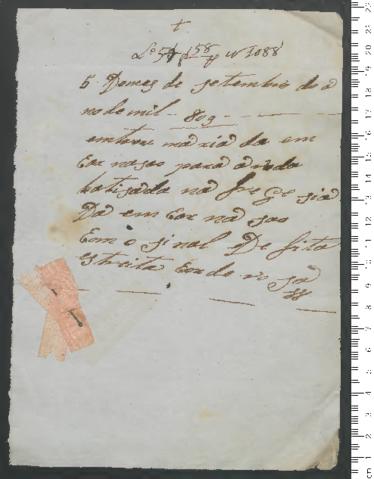 +
Lº 5º f 158 nº 1088
5 Domes de setembro do a
no de mil - 809 -
emtrou maria da em
Car nasão para a roda
batizada na fre Ge sia
Da em Car na sao
Com o sinal De fita
Estreita Cor de ro sa